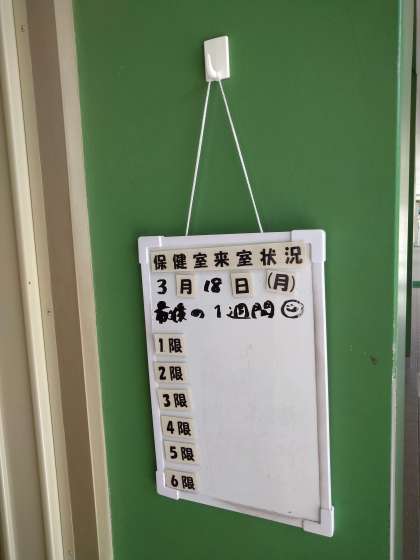 保健室来室状況
3月18日(月)
最後の1週間
1限
2限
3限
4限
5限
6限